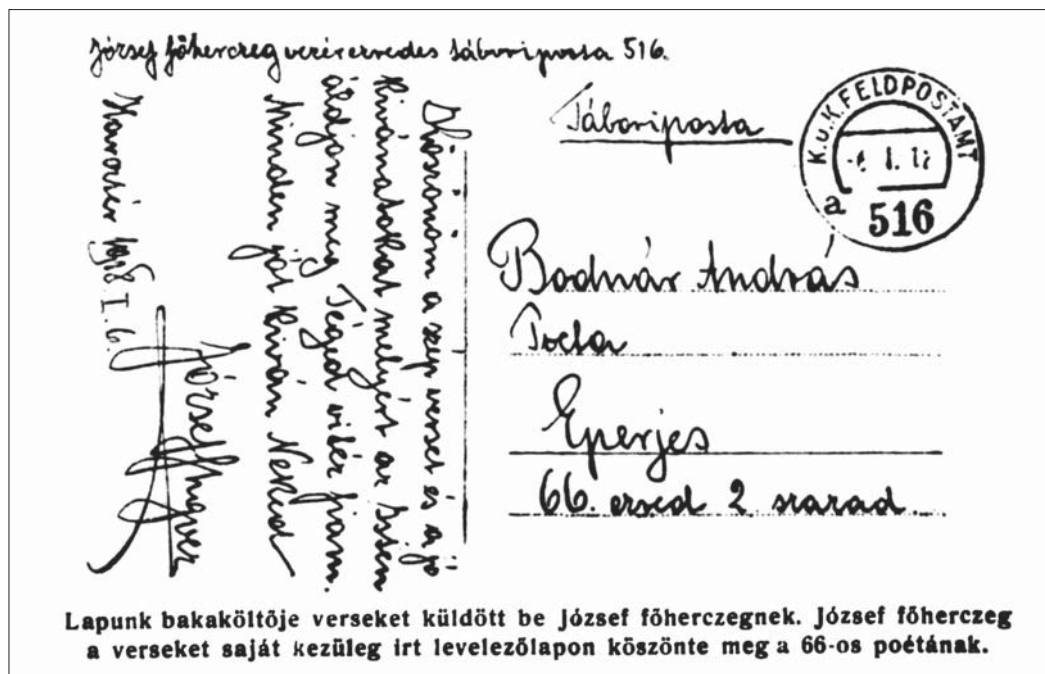 József főherczeg vezérezredes táboriposta 516.
Köszönöm a szép verset és a jó
kivánatokat melyért az Isten
áldjon meg Téged vitéz fiam.
Minden jót kiván Neked
József
Harctér 1918 I. 6.
Táboriposta
K.u.K FELDPOSTAMT
a
516
Bodnár András
Poéta
Eperjes
66. ezred 2 század
Lapunk bakaköltője verseket küldött be József főherczegnek. József főherczeg
a verseket saját kezüleg irt levelezőlapon köszönte meg a 66-os poétának.